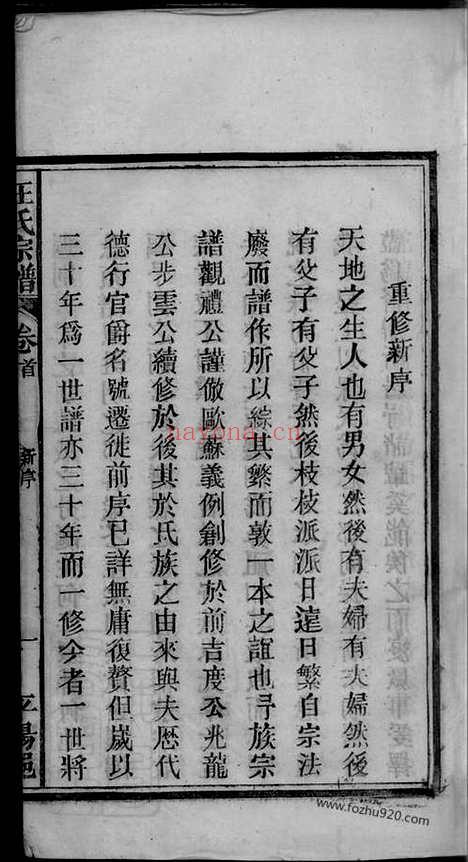 重修新序
天地之生人也有男女然後有夫婦有夫婦然後
有父子有父子然後枝枝派派日遠日繁自宗法
廢而譜作所以綜其繁而敦一本之誼也予族宗
譜觀禮公謹倣歐蘇義例創修於前吉度公兆龍
公步雲公續修於後其於氏族之由來與夫歷代
德行官爵名號遷徙前序已詳無庸復贅但歲以
三十年爲一世譜亦三十年而一修今者一世將
汪氏宗譜 卷首 新序 一
hayona.cn
www.fozhu920.com